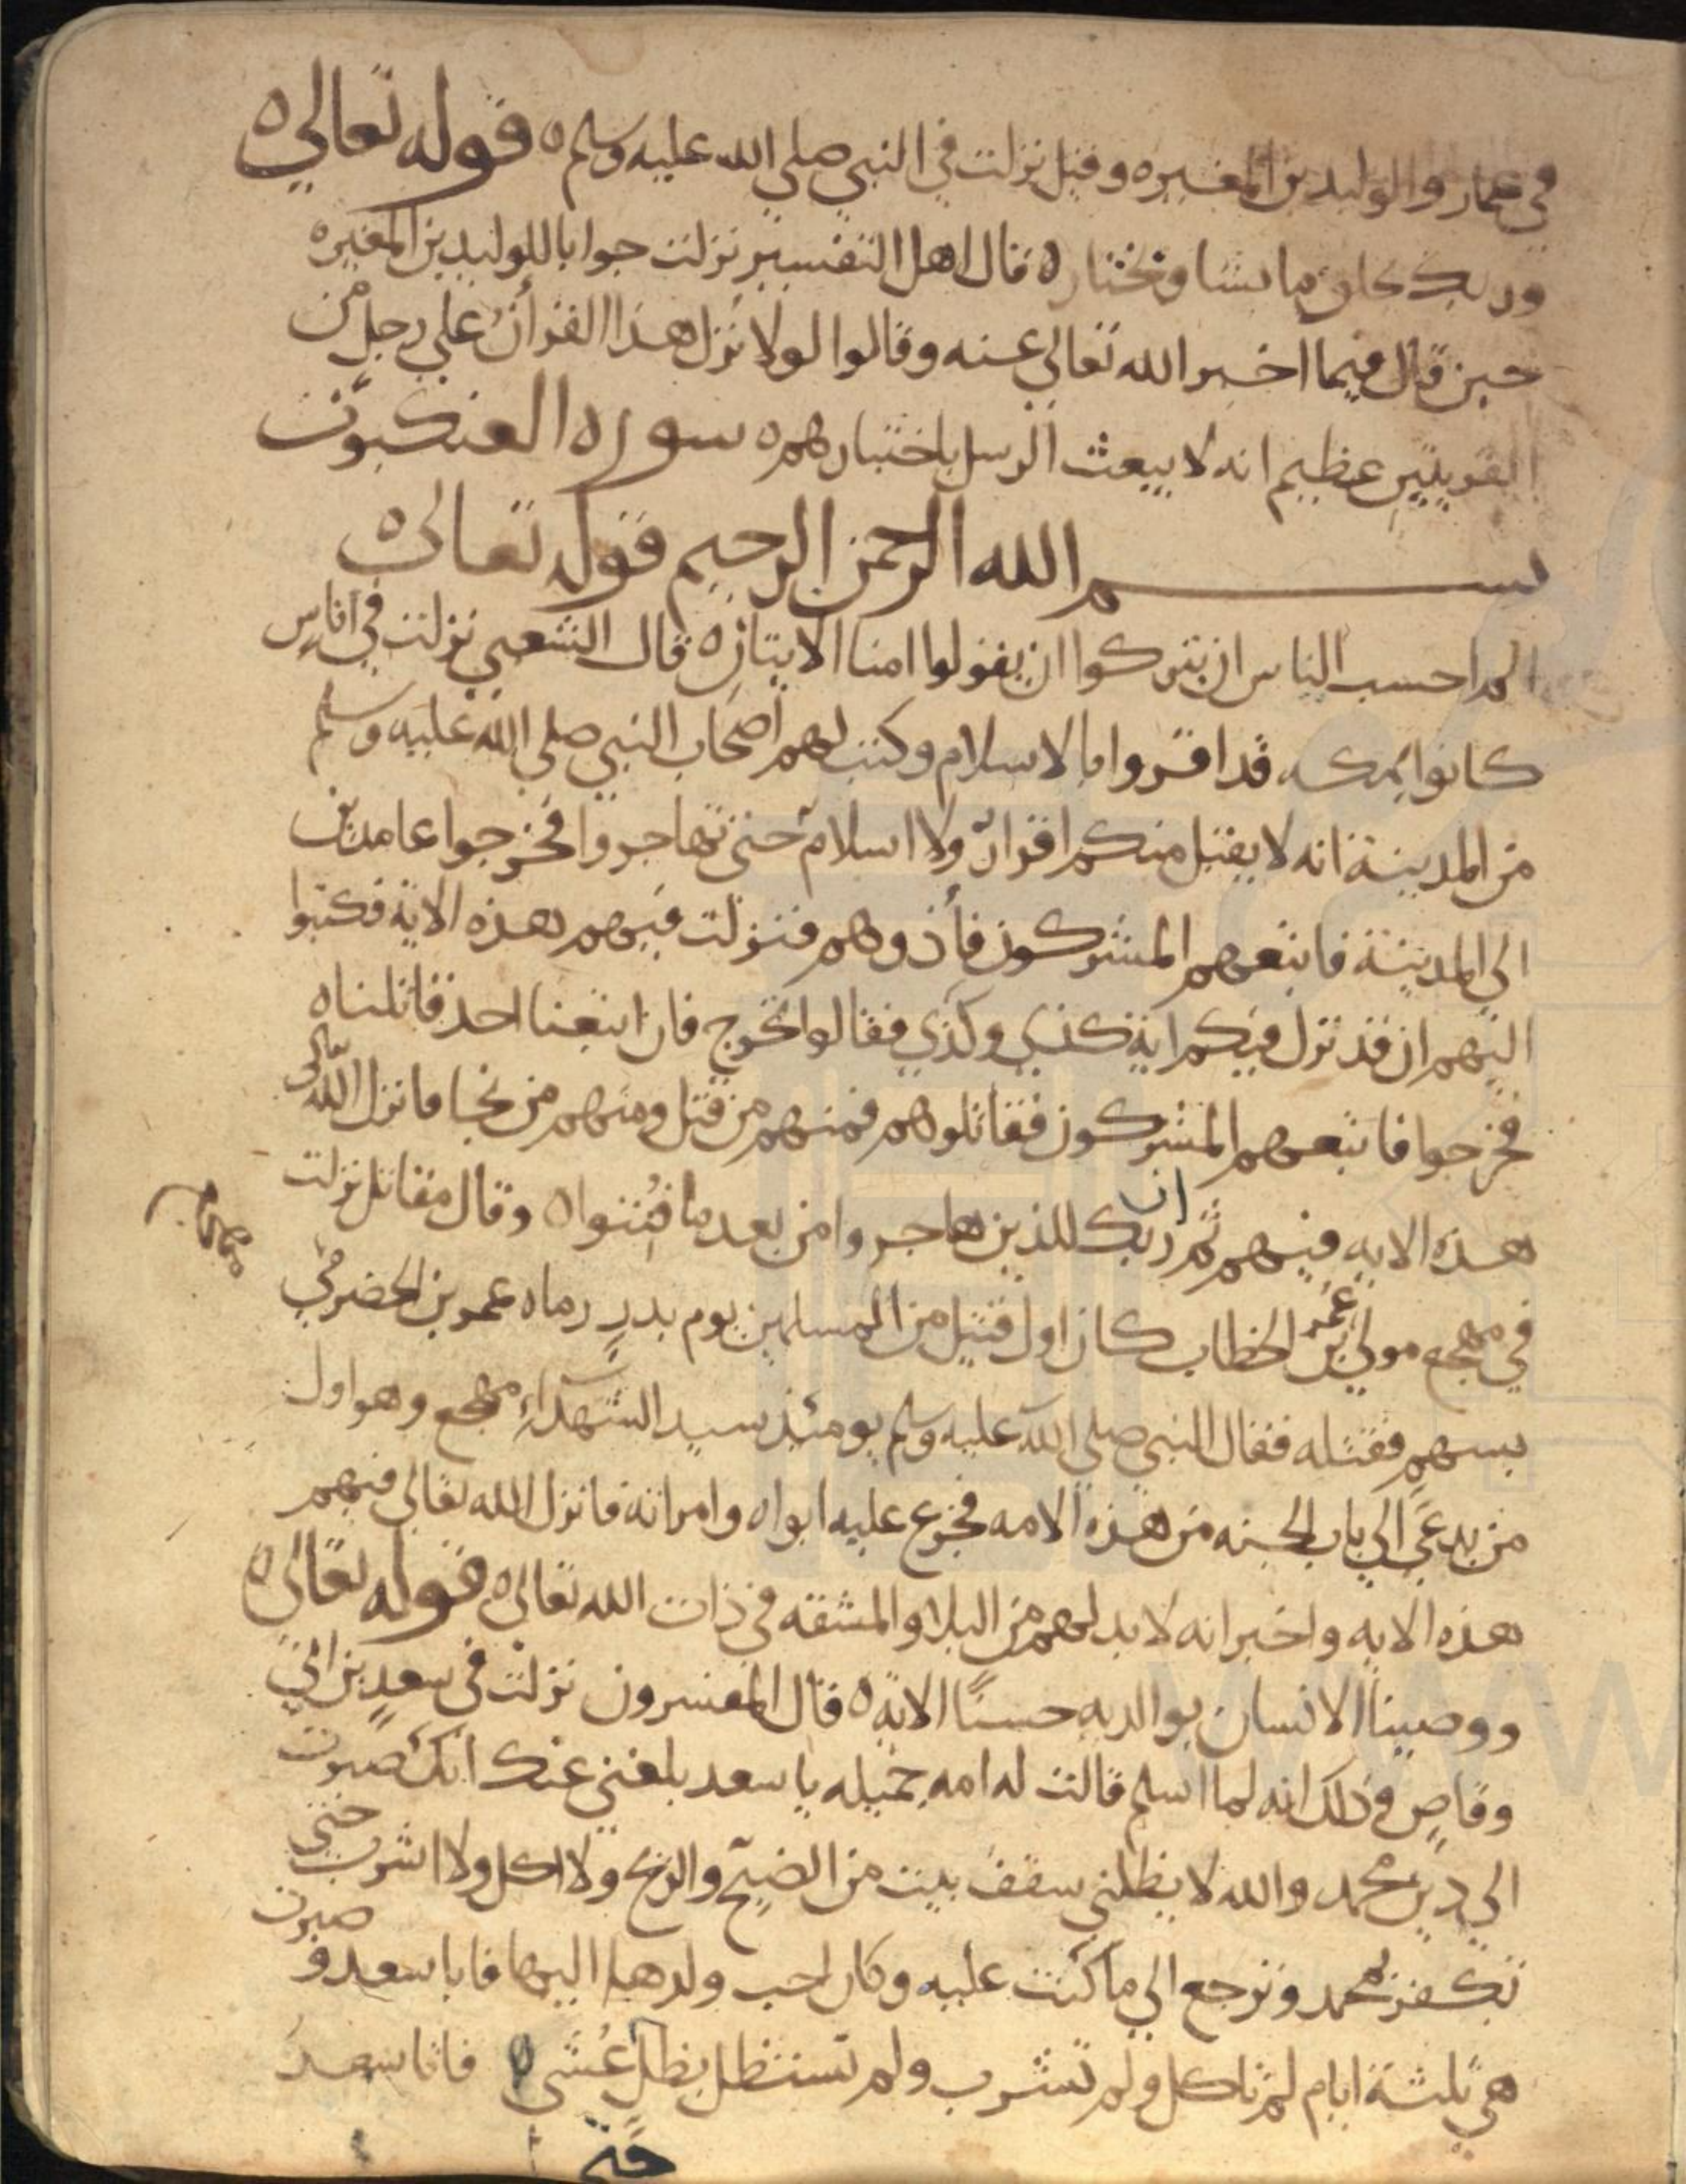 في عمار والوليد بن المغيره وقيل نزلت في النبي صلي الله عليه وسلم ه قوله تعالي ه
وربك يخلق ما يشا ويختار ه قال اهل التفسير نزلت جوابا للوليد بن المغيره
حين قال فيما اخبر الله تعالي عنه وقالوا لولا نزل هذا القرأن علي رجل من
القريتين عظيم انه لا يبعث الرسل باختيارهم ه سوره العنكبوت
بسم الله الرحمن الرحيم قوله تعالي ه
الم احسب الناس ان يتركوا ان يقولوا امنا الايتان ه قال الشعبي نزلت في اناس
كانوا بمكه قد اقروا بالاسلام وكتب لهم اصحاب النبي صلي الله عليه وسلم
من المدينة انه لا يقبل منكم اقرار ولا اسلام حتى تهاجروا فخرجوا عامدين
الي المدينة فاتبعهم المشركون فأذوهم فنزلت فيهم هذه الاية فكتبوا
اليهم ان قد نزل فيكم اية كذي وكذي فقالوا نخرج فان اتبعنا احد قاتلناه
فخرجوا فاتبعهم المشركون فقاتلوهم فمنهم من قتل ومنهم من نجا فانزل الله تعالى
هذه الايه فيهم ثم ان ربك للذين هاجروا من بعد ما فتنوا ه وقال مقاتل نزلت
في مهجع مولي عمر بن الخطاب كان اول قتيل من المسلمين يوم بدر رماه عمرو بن الحضرمي
بسهم فقتله فقال النبي صلي الله عليه وسلم يومئذ سيد الشهداء مهجع وهو اول
من يدعي الي باب الجنه من هذه الامه فجزع عليه ابواه وامراته فانزل الله تعالي فيهم
هذه الايه واخبر انه لا بد لهم من البلاء والمشقه في ذات الله تعالي ه قوله تعالي ه
ووصينا الانسان بوالديه حسنًا الايه ه قال المفسرون نزلت في سعد بن ابي
وقاص وذلك انه لما اسلم قالت له امه جميله يا سعد بلغني عنك انك صبوت
الي دين محمد والله لا يظلني سقف بيت من الضيح والريح ولا اكل ولا اشرب حتى
تكفر بمحمد وترجع الي ما كنت عليه وكان احب ولدها اليها فابا سعد و صبرت
هي ثلثة ايام لم تاكل ولم تشرب ولم تستظل بظل غشي ه فاتا سعد